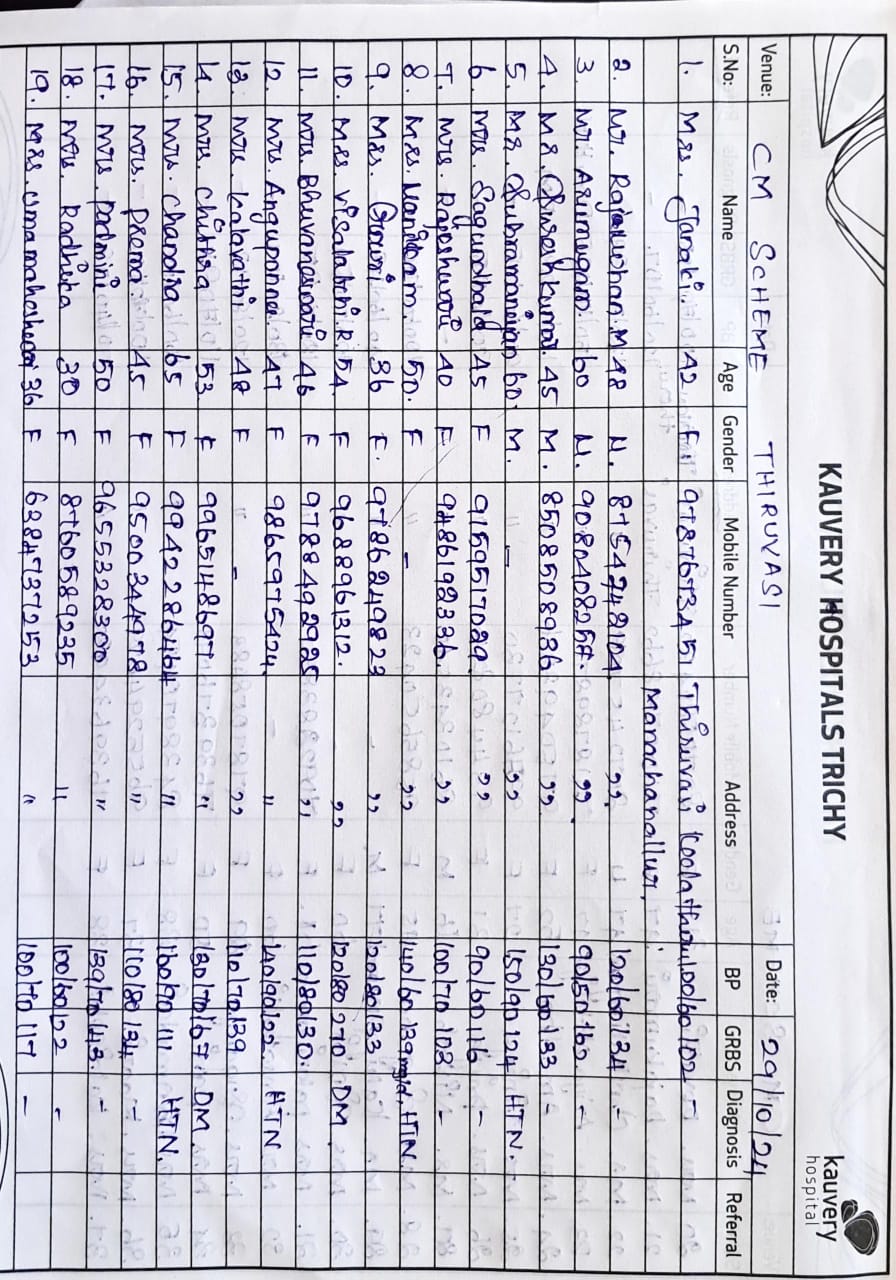 KAUVERY HOSPITALS TRICHY
kauvery
hospital
Venue: CM SCHEME THIRUVASI Date: 29/10/24
S.No: Name Age Gender Mobile Number Address BP GRBS Diagnosis Referral
1. Mrs. Janaki. 42 F. 9787673451 Thiruvasi 100/60 102 -
Manachanallur,
2. Mr. M 48 M. 8754748104 ,, 120/60 134 -
3. Mr. Arumugam. 60 M. ,, 90/50 162 -
4. Mr. Sureshkumar. 45 M. 8508508936 ,, 130/60 133
5. Mr. Subramaniyan 60 M. - ,, 150/90 124 HTN.
6. Mrs. 45 F 9159517029 ,, 90/60 116 -
7. Mrs. Rajeshwari 40 F 9486192336 ,, 100/70 102 -
8. Mrs. 50. F - ,, 140/60 139mg/d HTN.
9. Mrs. Gowri 36 F. 9786249823 ,, 120/80 133
10. Mrs Visalatchi.R. 54 F 9688961312. ,, 120/80 270 DM
11. Mrs. Bhuvaneswari 46 F 9788492925 ,, 110/80 130.
12. Mrs. 47 F 9865975424. " 140/90 122. HTN
13. Mrs. Kalavathi 48 F - ,, 110/70 139
14. Mrs. Chithra 53 F 9965148697 " 130/70 167 DM
15. Mrs. Chandra 65 F 9942286464 " 160/90 111 HTN.
16. Mrs. Prema 45 F 9500344978 " 110/80 134 -
17. Mrs. Padmini 50 F 9655328300 " 139/70 143. -
18. Mrs. Radhika 30 F 8760589235 " 100/60 122 -
19. Mrs. Umamaheshwari 36 F 6384737253 " 100/70 117 -